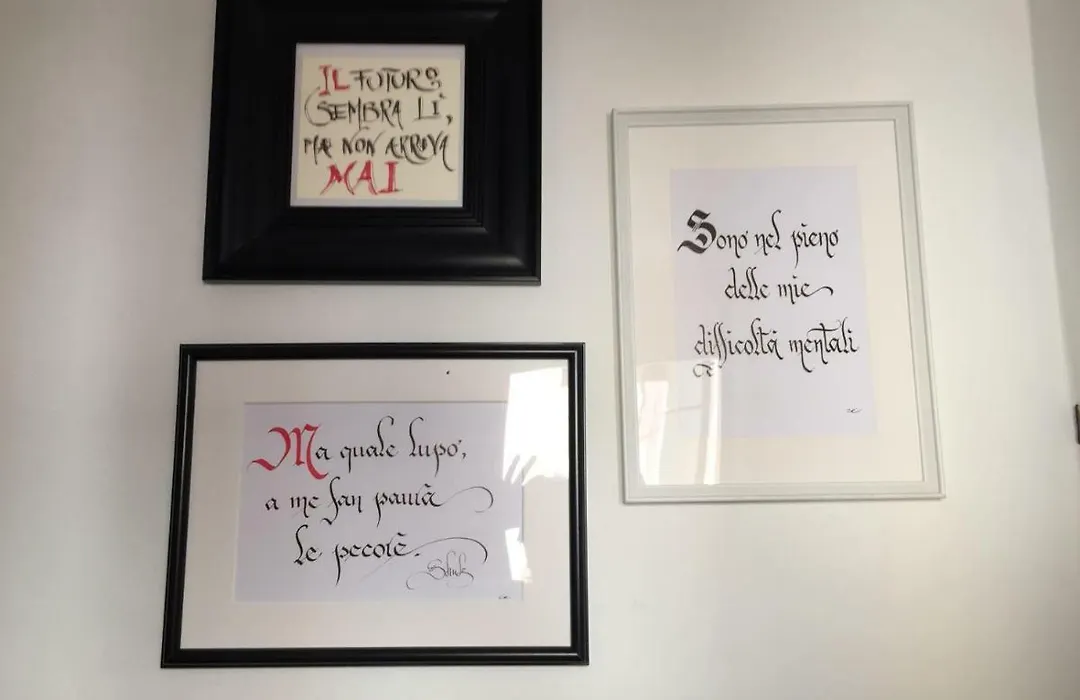 IL FUTURO
SEMBRA LÌ,
MA NON ARRIVA
MAI
Sono nel pieno
delle mie
difficoltà mentali
Ma quale lupo,
a me fan paura
le pecore.